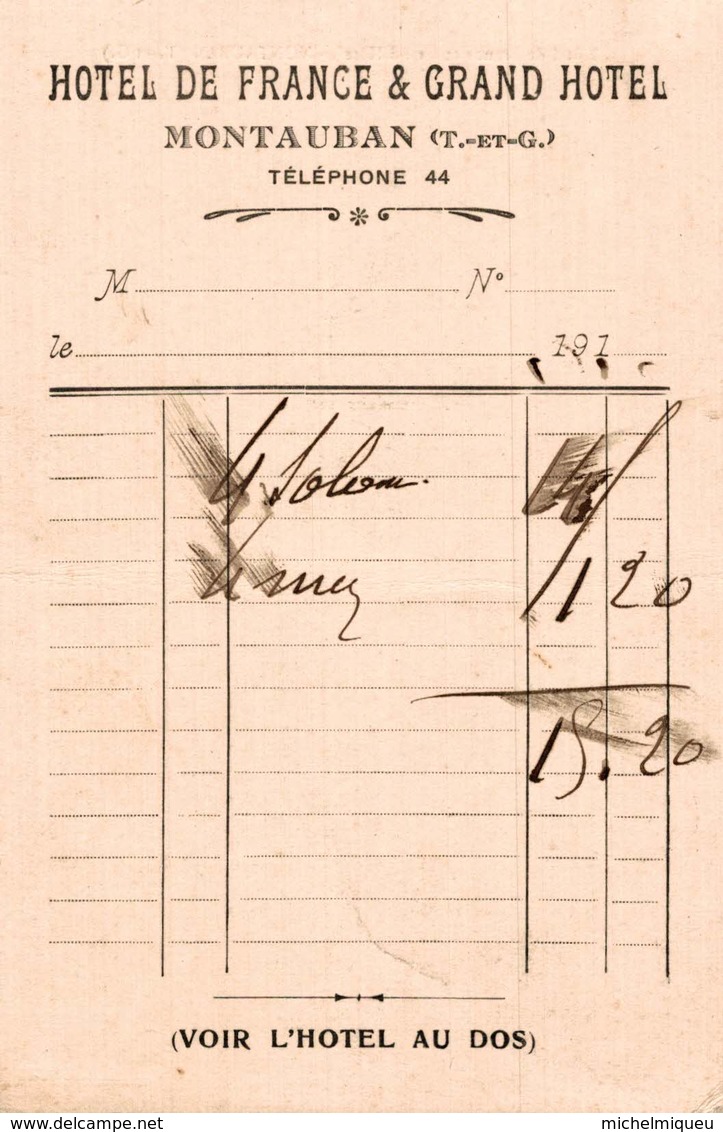 HOTEL DE FRANCE & GRAND HOTEL
MONTAUBAN (T.-ET-G.)
TÉLÉPHONE 44
M Nº
le 191
4 14/
4 1 20
15.20
(VOIR L'HOTEL AU DOS)
delcampe.net michelmiqueu